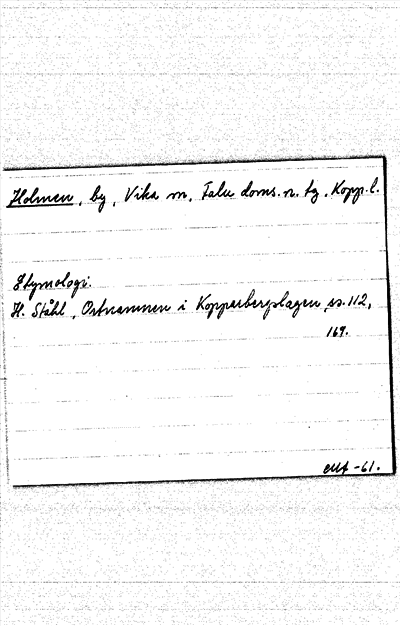 Holmen, by, Vika sn, Falu doms. n. tg, Kopp. l.
Etymologi.
H. Ståhl, Ortnamnen i Kopparbergslagen, ss. 112,
169.
-61.